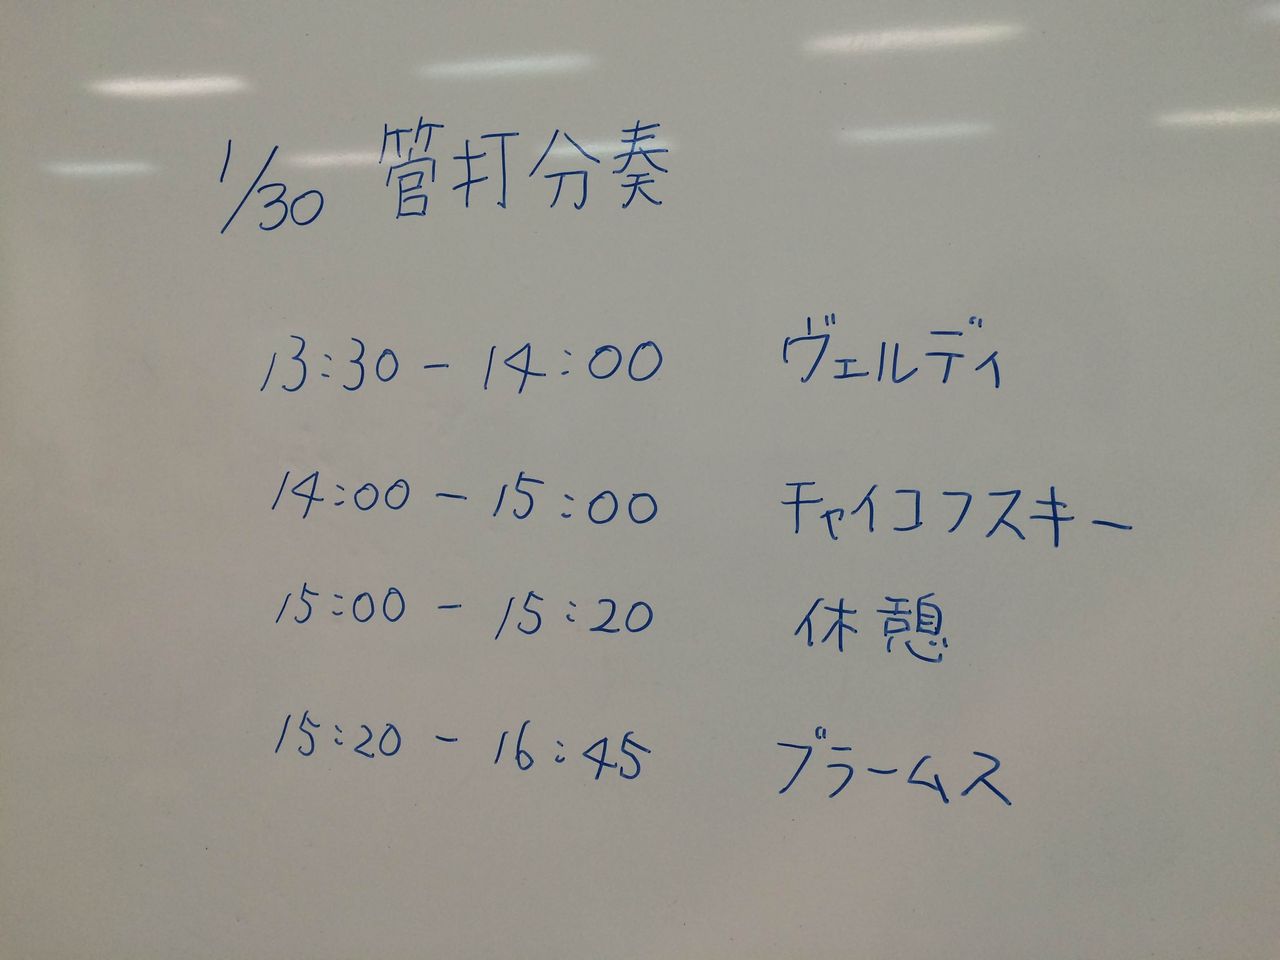 1/30 管打分奏
13:30 - 14:00 ヴェルディ
14:00 - 15:00 チャイコフスキー
15:00 - 15:20 休憩
15:20 - 16:45 ブラームス